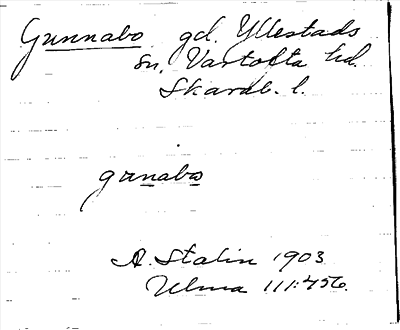 Gunnabo gd. Yllestads
sn. Vartofta hd.
Skarab. l.
gunabo
A. Stalin 1903
Ulma 111:456.